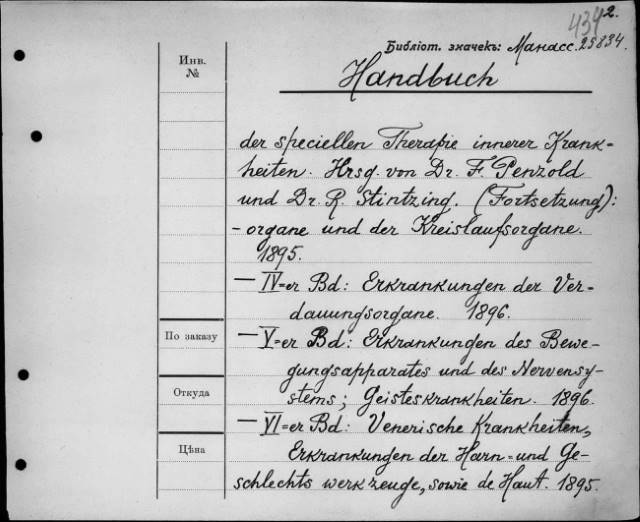 4342.
Библіот. значекъ: Манасс. 25834.
Инв. №
Handbuch
der speciellen Therapie innerer Krank-
heiten. Hrsg. von Dr. F. Penzold
und Dr. R. Stintzing. (Fortsetzung):
-organe und der Kreislaufsorgane.
1895.
— IV=er Bd: Erkrankungen der Ver-
dauungsorgane. 1896.
По заказу
— V=er Bd: Erkrankungen des Bewe-
gungsapparates und des Nervensy-
Откуда
stems; Geisteskrankheiten. 1896.
— VI=er Bd: Venerische Krankheiten,
Цѣна
Erkrankungen der Harn= und Ge-
schlechts werkzeuge, sowie de Haut. 1895.